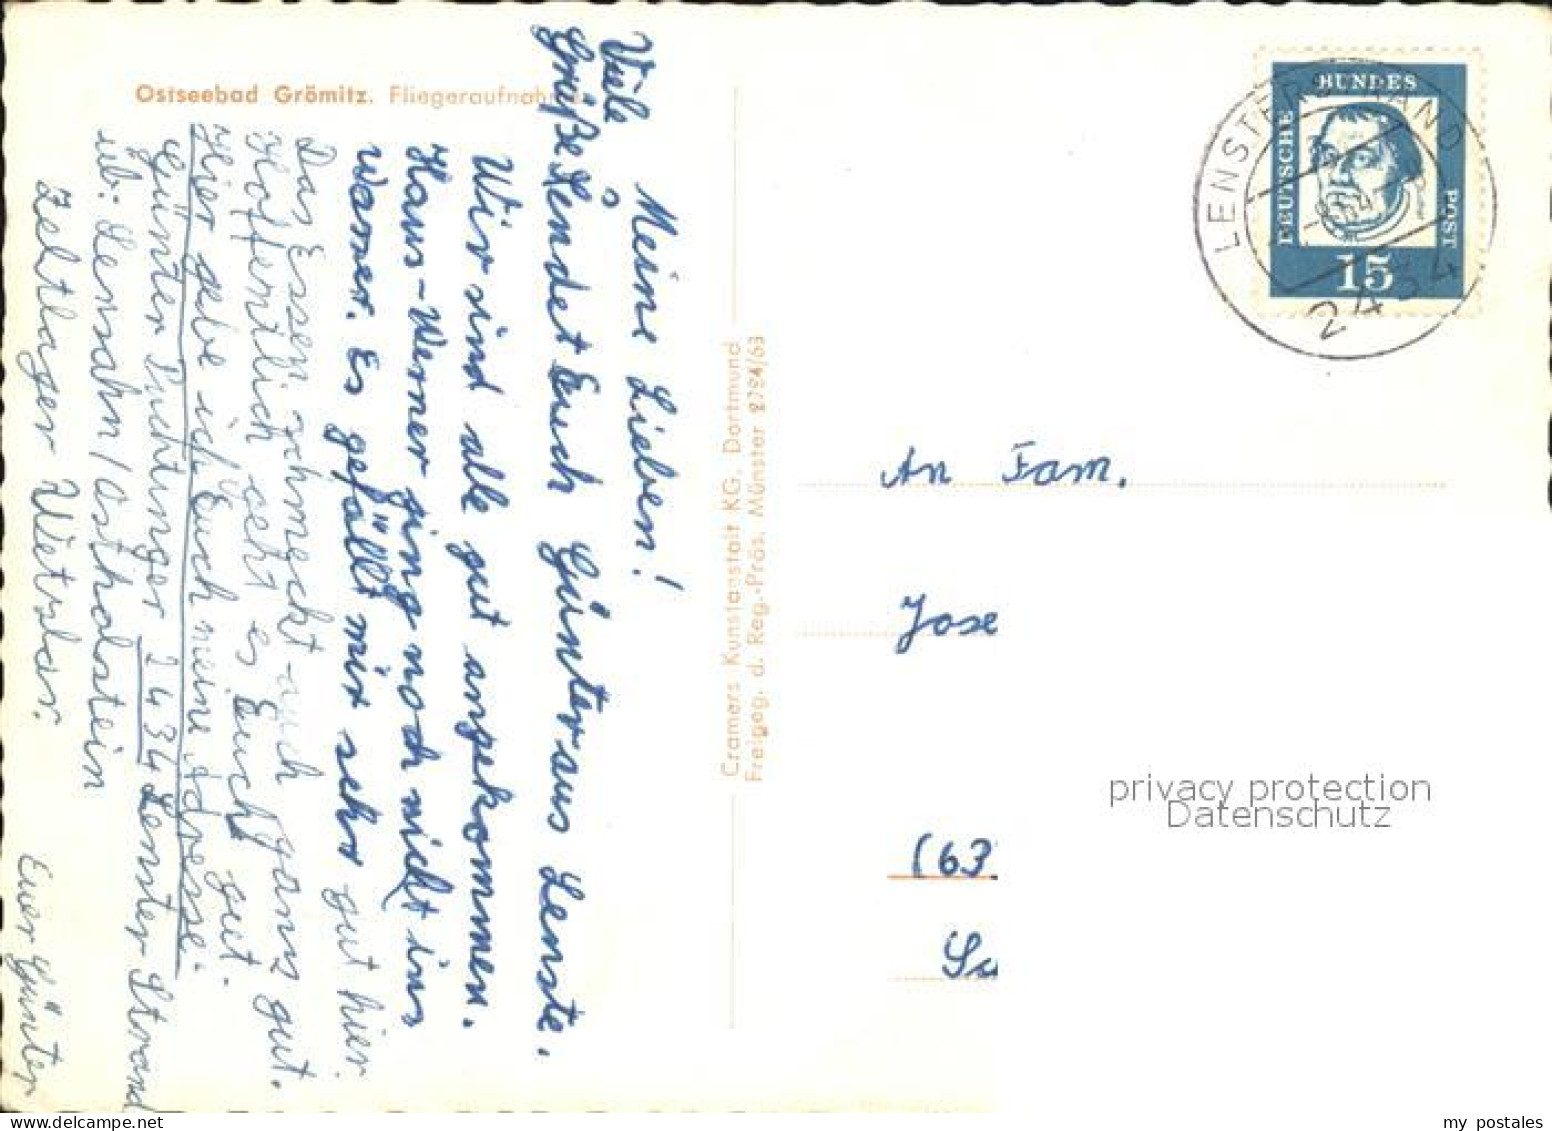 Ostseebad Grömitz. Fliegeraufnah
Meine Lieben!
Viele
Grüße sendet Euch Günter aus Lenste.
Wir sind alle gut angekommen.
Haus-Werner ging noch nicht ins
Wasser. Es gefällt mir sehr gut hier.
Das Essen schmeckt auch ganz gut.
Hoffentlich geht es Euch gut.
Hier gebe ich Euch meine Adresse:
Günter 2434 Lenster Strand
üb: Lensahn/Ostholstein
Zeltlager Wetzlar.
Euer Günter
Cramers Kunstanstalt KG. Dortmund
Freigeg. d. Reg.-Präs. Münster 2724/63
DEUTSCHE
BUNDES
POST
15
LENSTERSTRAND
2434
An Fam.
Jose
(63
privacy protection
Datenschutz
my postales